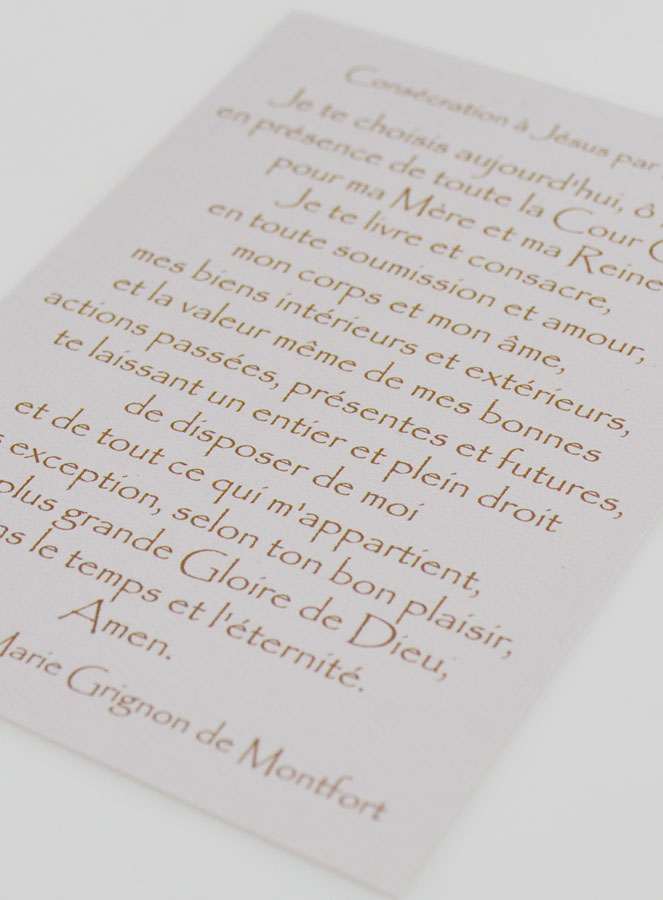 Consécration à Jésus par
Je te choisis aujourd'hui, ô
en présence de toute la Cour
pour ma Mère et ma Reine
Je te livre et consacre,
en toute soumission et amour,
mon corps et mon âme,
mes biens intérieurs et extérieurs,
et la valeur même de mes bonnes
actions passées, présentes et futures,
te laissant un entier et plein droit
de disposer de moi
et de tout ce qui m'appartient,
exception, selon ton bon plaisir,
plus grande Gloire de Dieu,
le temps et l'éternité.
Amen.
Marie Grignon de Montfort